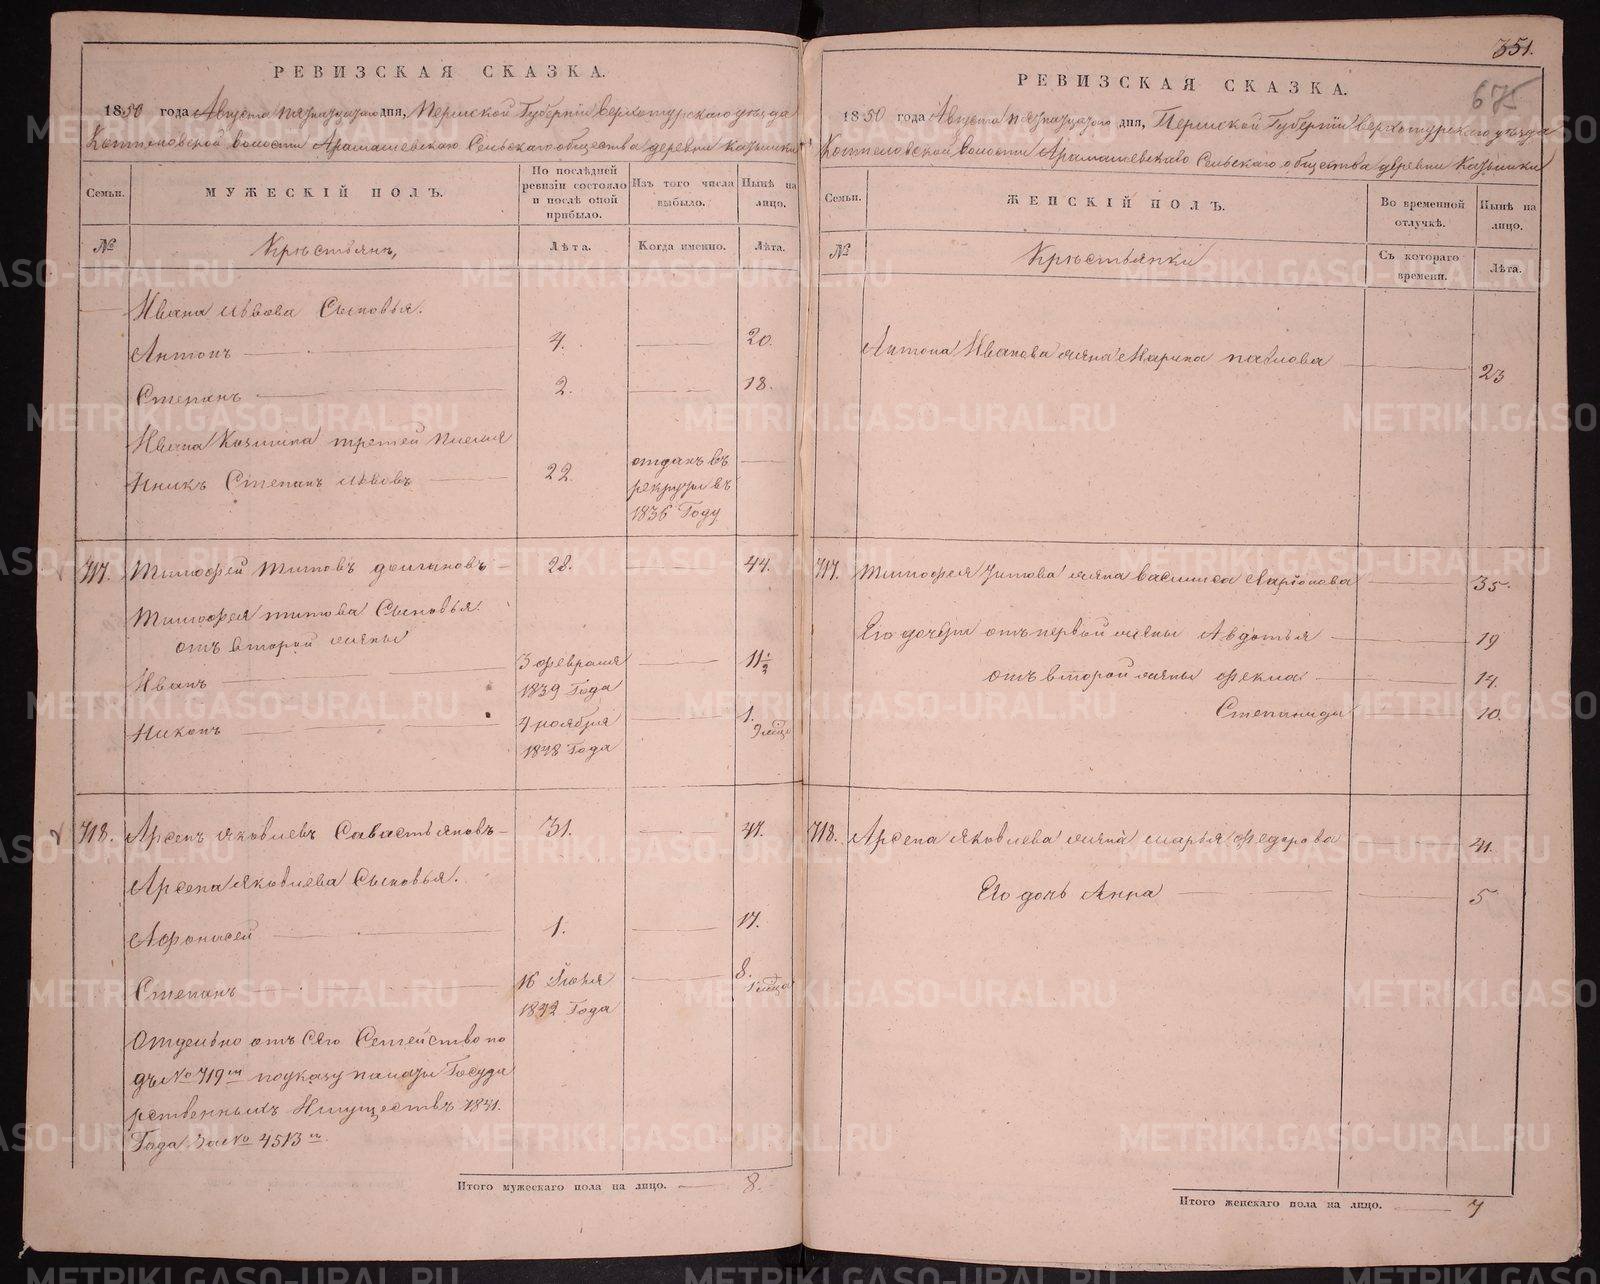 РЕВИЗСКАЯ СКАЗКА.
1850 года Августа пятнадцатого дня, Пермской Губернiи верхотурскаго уезда
волости Арамашевскаго Сельскаго общества деревни
Семьи.
МУЖЕСКIЙ ПОЛЪ.
По послѣдней ревизiи состояло и послѣ оной прибыло.
Изъ того числа выбыло.
Нынѣ на лицо.
№
Крестьянъ,
Лѣта.
Когда именно.
Лѣта.
Ивана Львова Сыновья.
Антонъ 4. 20.
Степанъ 2. 18.
Ивана Козмина третей племя
нникъ Степанъ Львовъ 22. отданъ въ
рекруты въ
1836 Году
717. Тимофей Титовъ 28. 44.
Тимофея титова Сыновья.
отъ второй жены
Иванъ 3 февраля 11½
1839 Года
Никонъ 4 ноября 1.
1848 Года 9 мѣсц
718. Арсенъ яковлевъ Савастьяновъ 31. 47.
Арсена яковлева Сыновья.
Афонасей 1. 17.
Степанъ 16 Iюня 8.
1842 Года 1 мѣсцъ
Отдельно отъ Сего Семейство по
дъ № 719м поуказу палаты Госуда
рственныхъ Имуществъ 1841.
Года За № 4513мъ.
Итого мужескаго пола на лицо. 8.
351.
675
РЕВИЗСКАЯ СКАЗКА.
1850 года Августа пятнадцатого дня, Пермской Губернiи верхотурскаго уезда
волости Арамашевскаго Сельскаго общества деревни
Семьи.
ЖЕНСКIЙ ПОЛЪ.
Во временной отлучкѣ.
Нынѣ на лицо.
№
Крестьянки
Съ котораго времени.
Лѣта.
Антона Иванова жена Марина павлова 23
717. Тимофея Титова жена василиса Ларiонова 35.
Его дочери отъ первой жены Авдотья 19
отъ второй жены фекла 14.
Степанида 10.
718. Арсена яковлева жена марья федорова 41.
Его дочь Анна 5
Итого женскаго пола на лицо. 7
METRIKI.GASO-URAL.RU